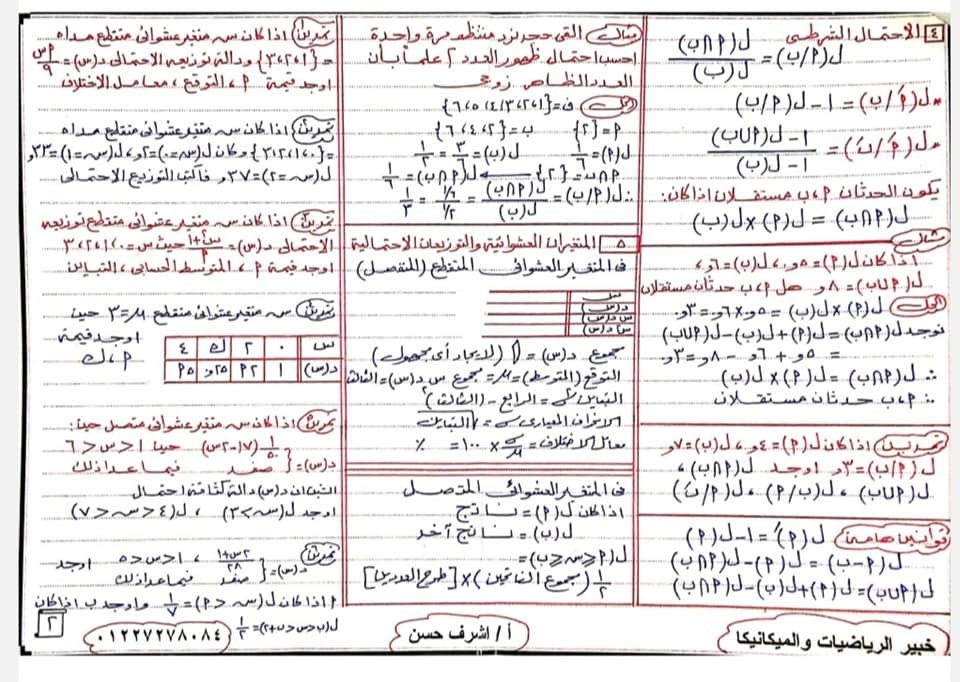 ٤ الاحتمال الشرطى
ل(P/ب) = ل(P∩ب) / ل(ب)
ل(Ṕ/ب) = ١ - ل(P/ب)
ل(Ṕ/ب́) = ١ - ل(P∪ب) / ١ - ل(ب)
يكون الحدثان P، ب مستقلان إذا كان:
ل(P∩ب) = ل(P) × ل(ب)
مثال
اذا كان ل(P) = ٥و، ل(ب) = ٦و،
ل(P∪ب) = ٨و هل P، ب حدثان مستقلان
الحل ل(P) × ل(ب) = ٥و × ٦و = ٣و.
نوجد ل(P∩ب) = ل(P) + ل(ب) - ل(P∪ب)
= ٥و + ٦و - ٨و = ٣و
∴ ل(P∩ب) = ل(P) × ل(ب)
∴ P، ب حدثان مستقلان
تدريب اذا كان ل(P) = ٤و، ل(ب) = ٧و
ل(P/ب) = ٣و اوجد ل(P∩ب)،
ل(P∪ب)، ل(ب/P)، ل(Ṕ/ب́)
قوانين هامة ل(Ṕ) = ١ - ل(P)
ل(P-ب) = ل(P) - ل(P∩ب)
ل(P∪ب) = ل(P) + ل(ب) - ل(P∩ب)
مثال القى حجر نرد منتظم مرة واحدة
احسب احتمال ظهور العدد ٢ علما بأن
العدد الظاهر زوجى
الحل ف = {١،٢،٣،٤،٥،٦}
P = {٢} ب = {٢،٤،٦}
ل(P) = ١/٦ ل(ب) = ٣/٦ = ١/٢
P∩ب = {٢} ل(P∩ب) = ١/٦
∴ ل(P/ب) = ل(P∩ب) / ل(ب) = ١/٦ / ١/٢ = ١/٣
٥ المتغيرات العشوائية والتوزيعات الاحتمالية
فى المتغير العشوائى المتقطع (المنفصل)
س
د(س)
س د(س)
س٢ د(س)
مجموع د(س) = ١ (لايجاد أى مجهول)
التوقع (المتوسط) = μ = مجموع س د(س) = الثالث
التباين σ٢ = الرابع - (الثالث)٢
الانحراف المعيارى σ = √التباين
معامل الاختلاف = σ/μ × ١٠٠ = %
فى المتغير العشوائى المتصل
اذا كان ل(P) = ناتج
ل(ب) = ناتج آخر
ل(P < س < ب) =
١/٢ (مجموع الناتجين) × [طرح العددين]
تمرين اذا كان س متغير عشوائى متقطع مداه
= {١،٢،٣} ودالة توزيعه الاحتمالى د(س) = P س/٩
اوجد قيمة P، التوقع، معامل الاختلاف
تمرين اذا كان س متغير عشوائى متقطع مداه
= {٠،١،٢،٣} وكان ل(س=٠) = ٢و، ل(س=١) = ٢٣و
ل(س=٢) = ٢٧و فاكتب التوزيع الاحتمالى
تمرين اذا كان س متغير عشوائى متقطع توزيعه
حيث س = ٠،١،٢،٣
اوجد قيمة P، المتوسط الحسابى، التباين
تمرين س متغير عشوائى متقطع μ = ٣ حيث
س ٠ ٢ ك ٤
اوجد قيمة
P، ك
تمرين اذا كان س متغير عشوائى متصل حيث:
د(س) = { ١/٥ (٧-٢س) حيث ١ < س < ٦
صفر فيما عدا ذلك
اثبت ان د(س) دالة كثافة احتمال
اوجد ل(س < ٣)، ل(٤ < س < ٧)
تمرين
د(س) = { ٢س+١/٢٨، ١ < س < ٥ اوجد
صفر فيما عدا ذلك
P اذا كان ل(س < P) = ١/٧ واوجد ب اذا كان
ل(ب < س < ب+٢) = ١/٢
٢
٠١٢٢٧٢٧٨٠٨٤
أ/ اشرف حسن
خبير الرياضيات والميكانيكا